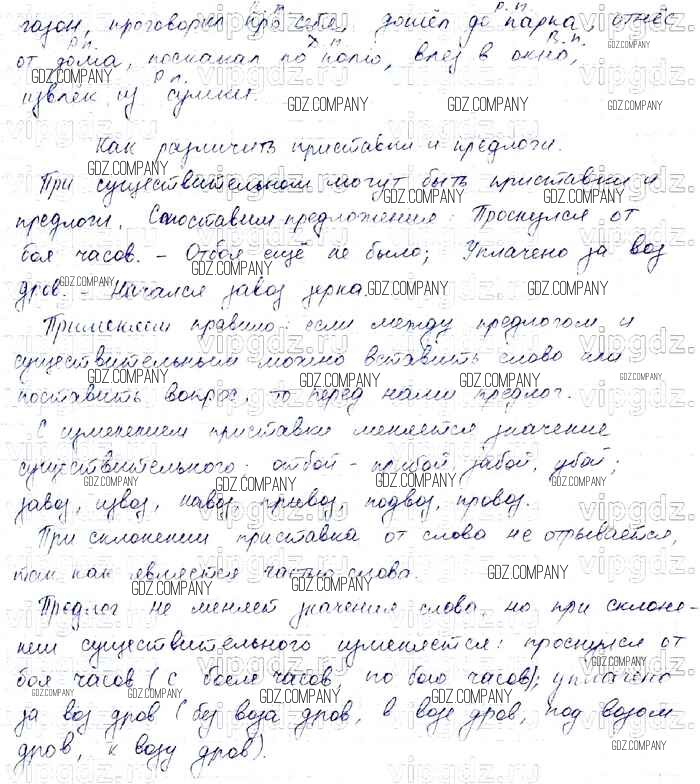 газон, проговорил про себя, дошёл до парка, отнёс
Р.п. П. Р.п. В.п.
от дома, поскакал по полю, влез в окно,
Р.п.
извлёк из сумки.
Как различить приставки и предлоги.
При существительном могут быть приставки и
предлоги. Сопоставим предложения: Проснулся от
боя часов. - Отбоя ещё не было; Уплачено за воз
дров. - Начался завоз зерна.
Применяем правило: если между предлогом и
существительным можно вставить слово или
поставить вопрос, то перед нами предлог.
С изменением приставки меняется значение
существительного: отбой - прибой, забой, убой;
завоз, извоз, навоз, привоз, подвоз, провоз.
При склонении приставка от слова не отрывается,
так как является частью слова.
Предлог не меняет значения слова, но при склоне-
нии существительного изменяется: проснулся от
боя часов (с боем часов, по бою часов); уплачено
за воз дров (без воза дров, в возе дров, под возом
дров, к возу дров).
GDZ.COMPANY
vipgdz.ru